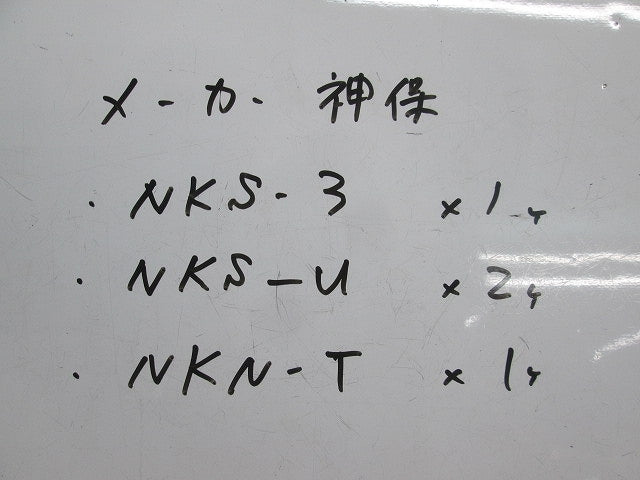 メーカー 神保
・NKS-3 ×1ヶ
・NKS-U ×2ヶ
・NKN-T ×1ヶ